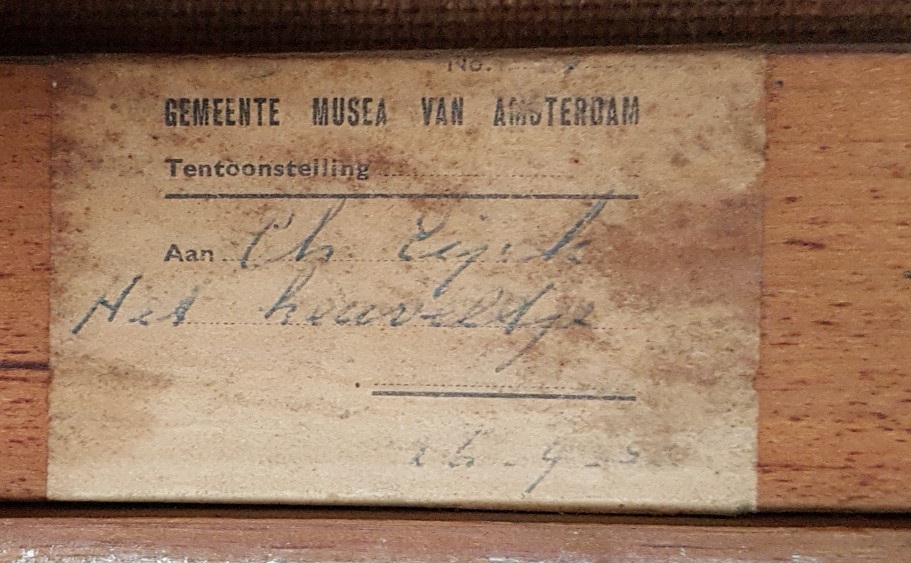 No.
GEMEENTE MUSEA VAN AMSTERDAM
Tentoonstelling
Aan Ch Eijck
Het heuveltje
26-9-5